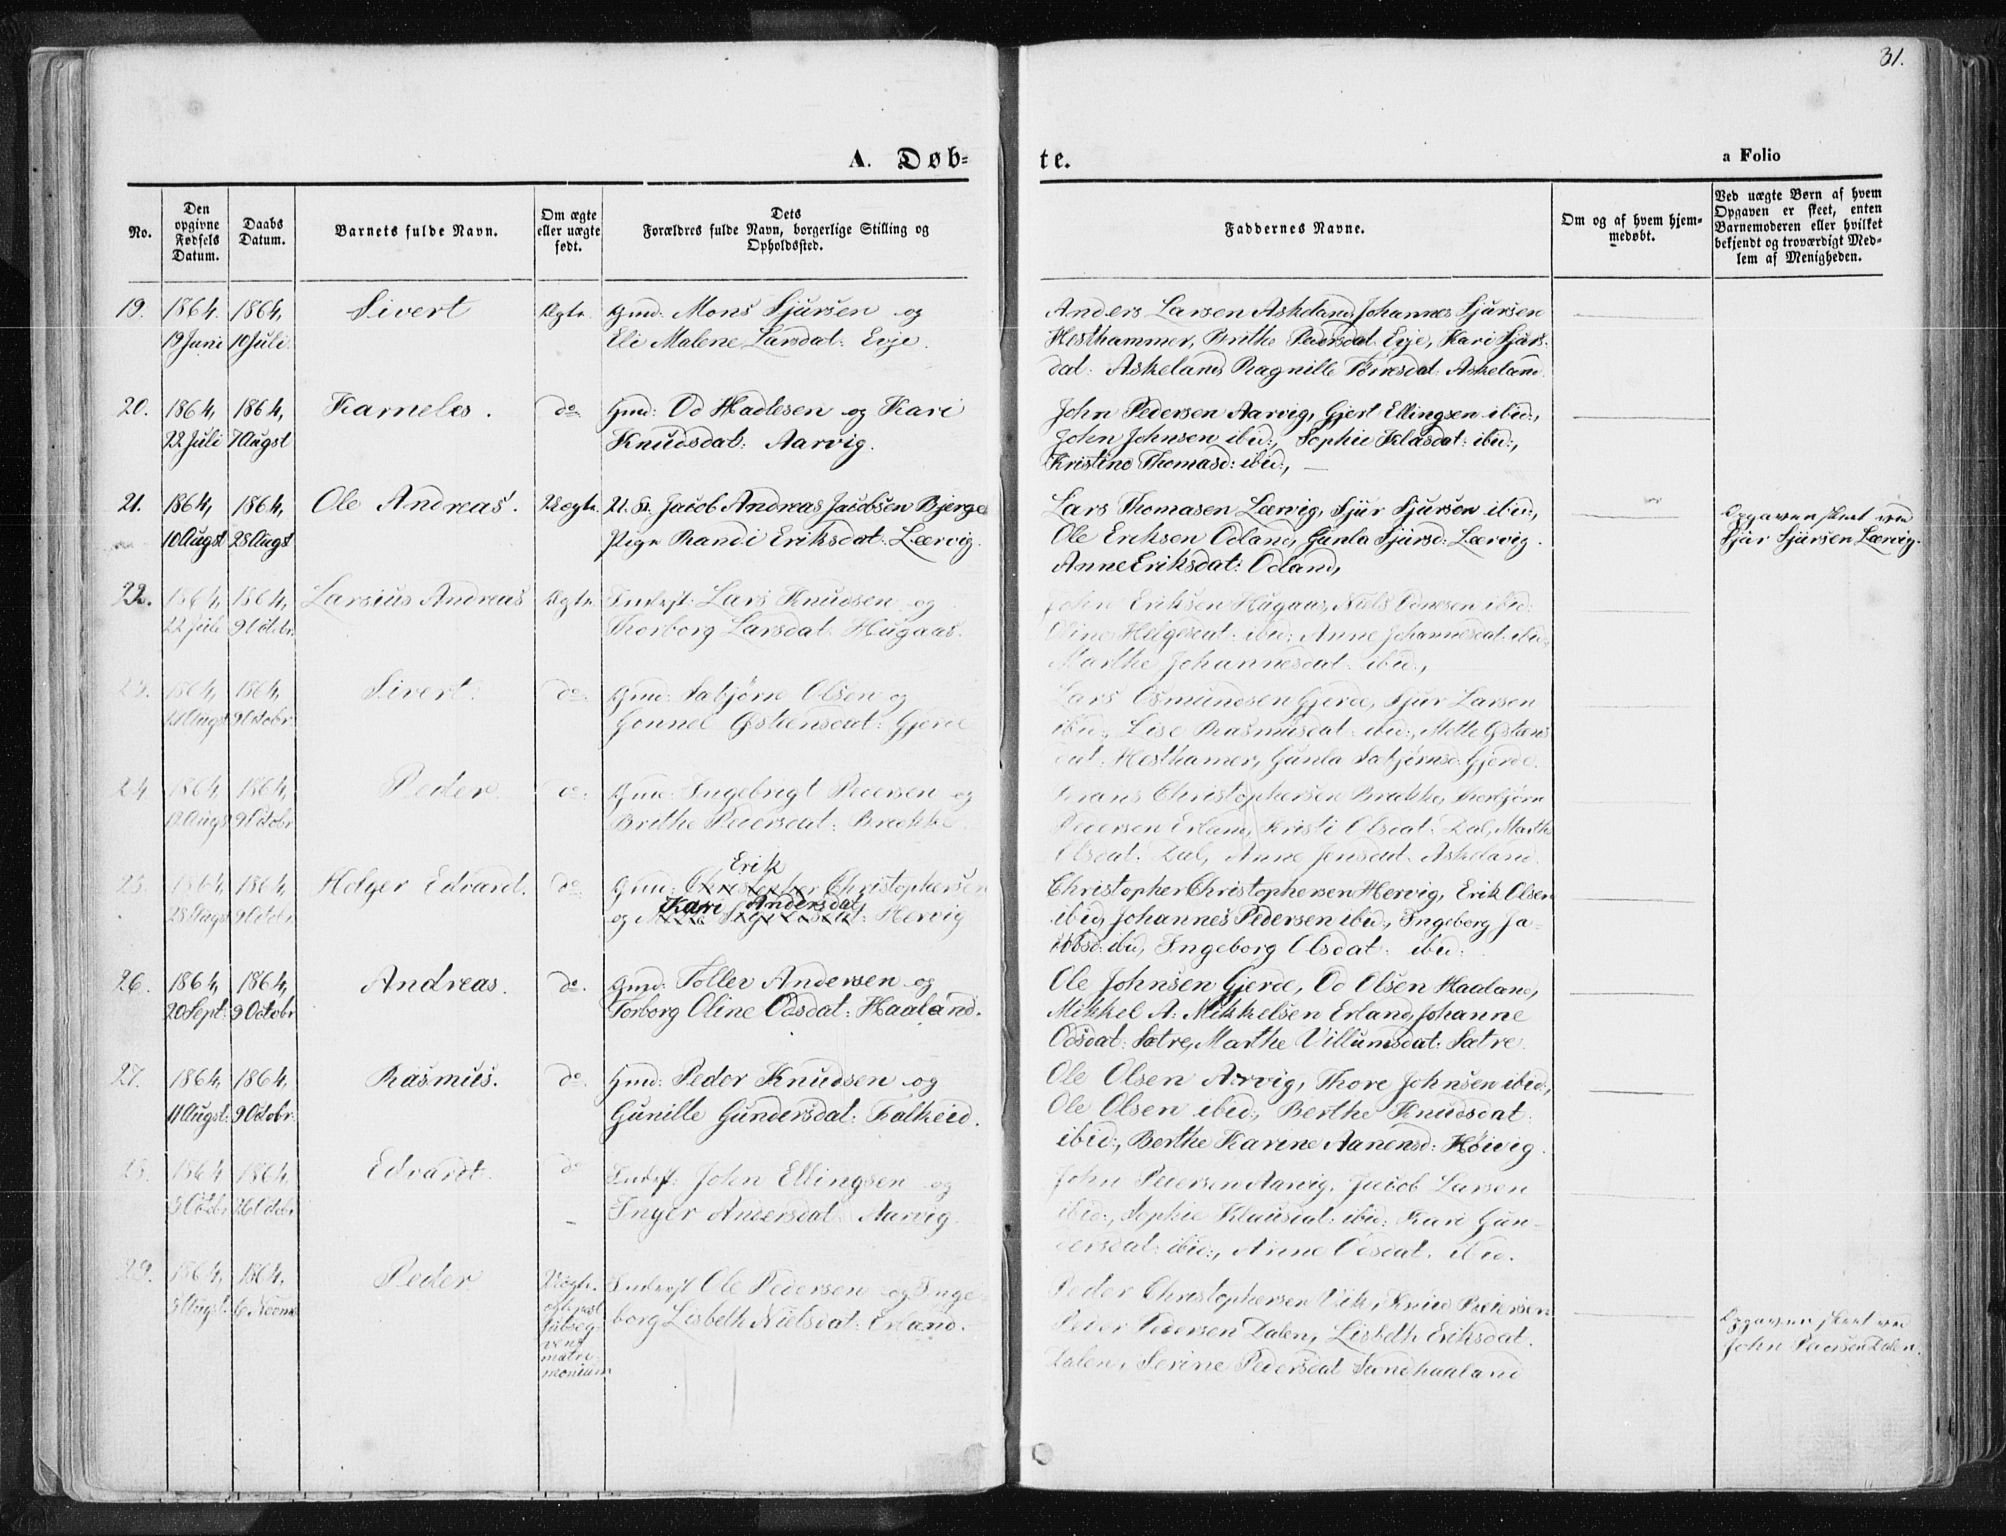 31.
A. Døb-
te.
a Folio
No.
Den opgivne Fødsels Datum.
Daabs Datum.
Barnets fulde Navn.
Om ægte eller uægte født.
Dets Forældres fulde Navn, borgerlige Stilling og Opholdssted.
Faddernes Navne.
Om og af hvem hjemmedøbt.
Ved uægte Børn af hvem Opgaven er skeet, enten Barnemoderen eller hvilket bekjendt og troværdigt Medlem af Menigheden.
19. 1864. 1864, Sivert Ægte. Gmd: Mons Sjursen og
19 Juni 10 Juli Eli Malene Larsdat: Eije.
Anders Larsen Askeland, Johannes Sjursen
Hesthammer, Brithe Pedersdat Eije, Kari Sjurs-
dat: Askeland Ragnille Tørresdat: Askeland
20. 1864, 1864, Karneles. do Gmd: Od Hadlesen og Kari
22 Juli 7 Augst Knudsdat: Aarvig.
John Pedersen Aarvig, Gjert Ellingsen ibid:,
John Johnsen ibid:, Sophie Klasdat: ibid:,
Kristine Thomasd: ibid:,
21. 1864, 1864, Ole Andreas. Uægte. U. K. Jacob Andreas Jacobsen Bjerge
10 Augst 28 Augst Pige Randi Eriksdat: Lærvig.
Lars Thomasen Lærvig, Sjur Sjursen ibid:,
Ole Eriksen Odland, Gunla Sjursd: Lærvig.
Anne Eriksdat: Odland,
Opgaven skeet ved
Sjur Sjursen Lærvig.
22. 1864, 1864, Larsius Andreas Ægte. Inderst: Lars Knudsen og
22 Juli 9 Octbr. Thorborg Larsdat: Hugaas.
John Eriksen Hugaas, Niels Odnesen ibid:
Oline Helgesdat: ibid: Anne Johannesdat: ibid:,
Marthe Johannesdat: ibid:,
23. 1864, 1864, Sivert. do. Gmd: Sabjørn Olsen og
21 Augst 9 Octobr Gonnel Østensdat: Gjerde
Lars Osmundsen Gjerde, Sjur Larsen
ibid:, Lise Rasmusdat: ibid:, Mette Østens
dat: Hesthamer, Gunla Sabjørnsd: Gjerde.
24. 1864, 1864, Peder do. Gmd: Ingebrigt Pedersen og
9 Octobr Brithe Pedersdat: Brække
Christophersen Brække, Thorbjørn
Pedersen Erland, Kristi Olsdat: Dal, Marthe
Olsdat: Dal, Anne Jensdat: Askeland.
Erik
25. 1864, 1864, Helger Edvardt. do Gmd: Christopher Christophersen
Kari Andersdat
28 Augst 9 Octobr og : Hervig
Christopher Christophersen Hervig, Erik Olsen
ibid, Johannes Pedersen ibid:, Ingeborg Ja-
kobsd: ibid, Ingeborg Olsdat: ibid:
26. 1864, 1864, Andreas. do. Gmd: Tollev Andersen og
20 Sept: 9 Octobr Torborg Oline Odsdat: Haaland.
Ole Johnsen Gjerde, Od Olsen Haaland,
Mikkel A: Mikkelsen Erland, Johanne
Odsdat: Sætre, Marthe Villumsdat: Sætre.
27. 1864, 1864, Rasmus. do. Gmd: Peder Knudsen og
11 Augst: 9 Octobr. Gunille Gundersdat: Falkeid.
Ole Olsen Arvig, Thore Johnsen ibid:,
Ole Olsen ibid:, Berthe Knudsdat
ibid:, Berthe Karine Aanensd: Høivig.
28. 1864 1864, Edvardt. do Inderst: John Ellingsen og
5 Octbr 26 Octobr Inger Andersdat Aarvig.
John Pedersen Aarvig, Jacob Larsen
ibid:, Sophie Klausdat: ibid: Kari Gun-
dersdat: ibid:, Anne Odsdat. ibid.
29. 1864, 1864, Peder Uægte. Inderst Ole Pedersen og Inge-
5 Augst. 6 Novmb. ægte post subseqvens matrimonium borg Lisbeth Nielsdat: Erland.
Peder Christophersen Vik, Knud Pedersen
Peder Pedersen Dalen, Lisbeth Eriksdat.
Dalen, Serine Pedersdat Sandhaaland
Opgaven skeet ved
John Pedersen Dalen.